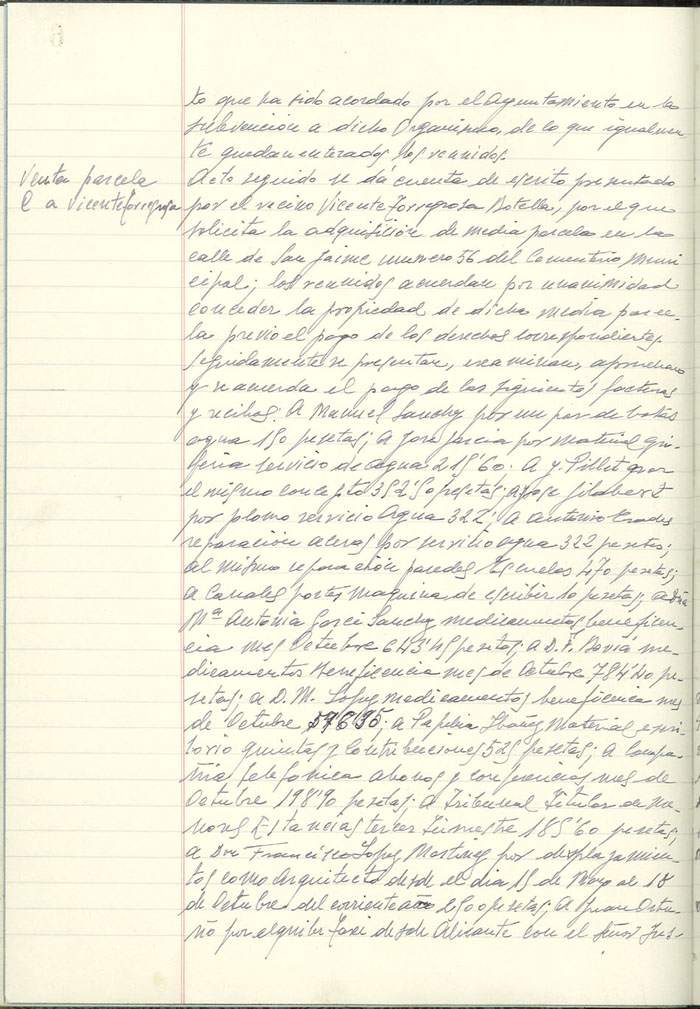 to que ha sido acordado por el Ayuntamiento en la
subvención a dicho Organismo, de lo que igualmen
te quedan enterados los reunidos.
Venta parcela
C a Vicente Torregrosa
Acto seguido se dá cuenta de escrito presentado
por el vecino Vicente Torregrosa Botella, por el que
solicita la adquisición de media parcela en la
calle de San Jaime numero 56 del Cementerio Muni
cipal; los reunidos acuerdan por unanimidad
conceder la propiedad de dicha media parce-
la previo el pago de los derechos correspondientes.
Seguidamente se presentan, examinan, aprueban
y se acuerda el pago de las siguientes facturas
y recibos. A Manuel Sanchez por un par de botas
agua 150 pesetas; a Jose Garcia por material gri-
feria servicio de agua 215'60. A y. Pillet por
el mismo concepto 352'50 pesetas; a Jose Gilabert
por plomo servicio Agua 322'; a Antonio Prades
reparación aceras por servicio agua 322 pesetas;
al mismo reparación paredes Escuelas 470 pesetas;
a Canales portes maquina de escribir 10 pesetas; a Dña
Mª Antonia Garci Sanchez medicamentos beneficen-
cia mes Octubre 643'45 pesetas; a D. F. Bovia me-
dicamentos Beneficencia mes de Octubre 784'40 pe-
setas; a D. M. Lopez medicamentos beneficencia mes
de Octubre 576'95; a Papeleria Ibañez Material escri-
torio quintas y Contribuciones 525 pesetas; a Compa-
ñia Telefonica abonos y conferencias mes de
Octubre 198'90 pesetas; a Tribunal Titular de Me-
nores Estancias tercer trimestre 185'60 pesetas;
a Don Francisco Lopez Martinez por desplazamien-
tos como Arquitecto desde el dia 15 de Mayo al 18
de Octubre del corriente año 2.500 pesetas; A Juan Ortu-
ño por alquiler Taxi desde Alicante con el Señor Jus-